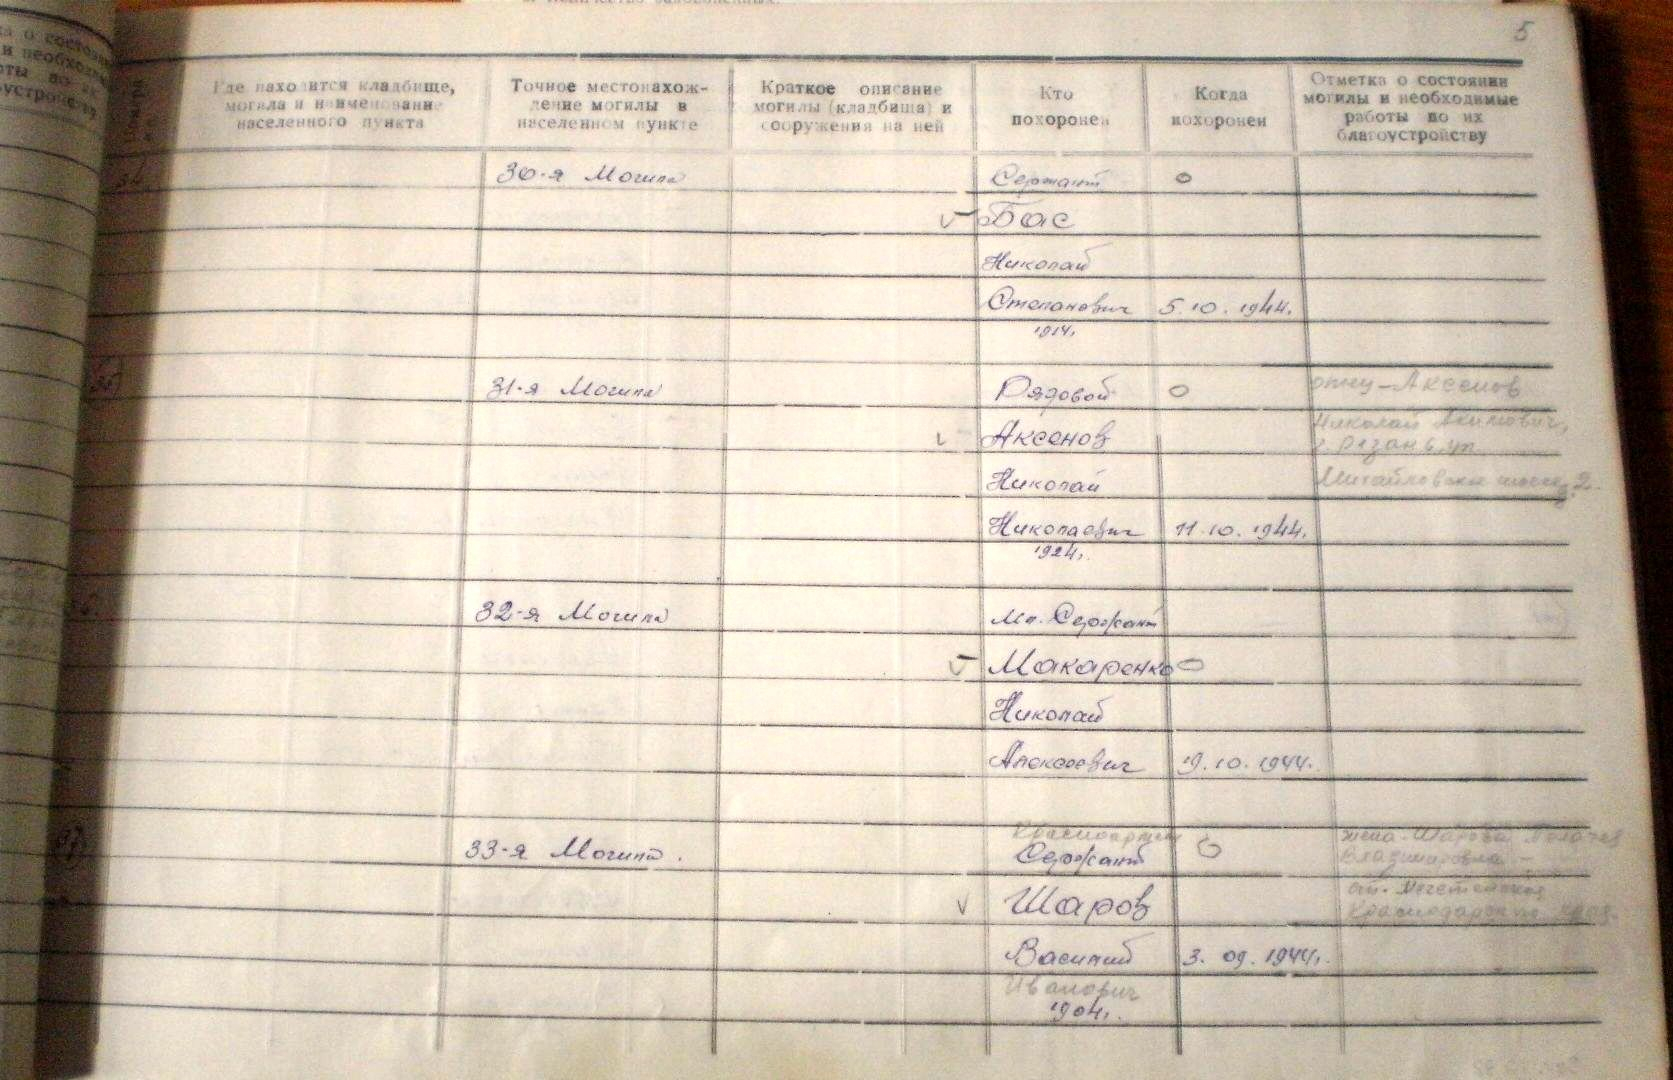 5
Где находится кладбище,
могила и наименование
населенного пункта
Точное местонахож-
дение могилы в
населенном пункте
Краткое описание
могилы (кладбища) и
сооружения на ней
Кто
похоронен
Когда
похоронен
Отметка о состоянии
могилы и необходимые
работы по их
благоустройству
30-я Могила
Сержант
Бас
Николай
Степанович 5.10.1944г.
1914г.
31-я Могила
Рядовой
отец-Аксенов
Николай Акимович,
Аксенов
г. Рязань, ул.
Николай
Михайловское шоссе, 2
Николаевич 11.10.1944г.
1924г.
32-я Могила
Мл. Сержант
Макаренко
Николай
Алексеевич 19.10.1944г.
Красноармеец
33-я Могила.
Сержант
жена-Шарова
Владимировна-
Шаров
Василий 3.09.1944г.
Иванович
1904г.